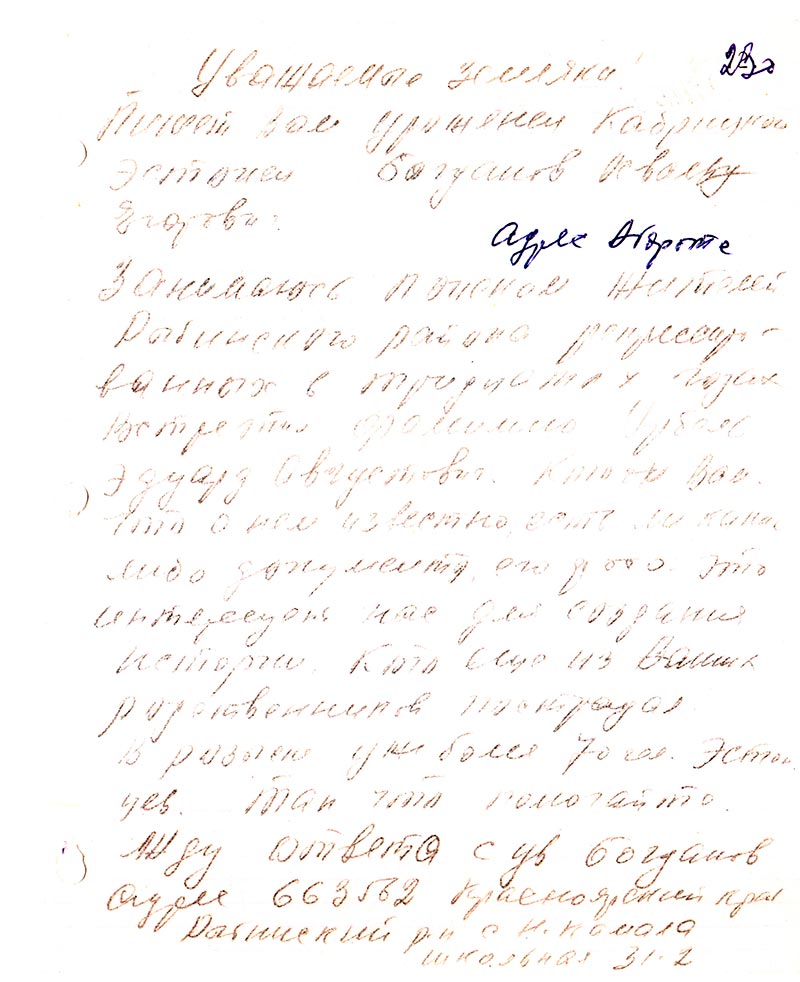 Уважаемые земляки!
Пишет Вам уроженец
Эстонец Богданов
Егорович.
Адрес на обороте
Занимаюсь поиском жителей
Рыбинского района репрессиро-
ванных в тридцатых годах
Встретил фамилию
Эдуард Августович. Кто он Вам.
Что о нем известно, есть ли какие
либо документы, его фото. Это
интересует нас для создания
истории. Кто еще из Ваших
родственников пострадал.
В районе уже более 70 чел. Эстон
цев. Так что помогайте.
Жду ответа с ув Богданов
Адрес 663562 Красноярский край
Рыбинский р-н с Н. Камала
школьная 31-2